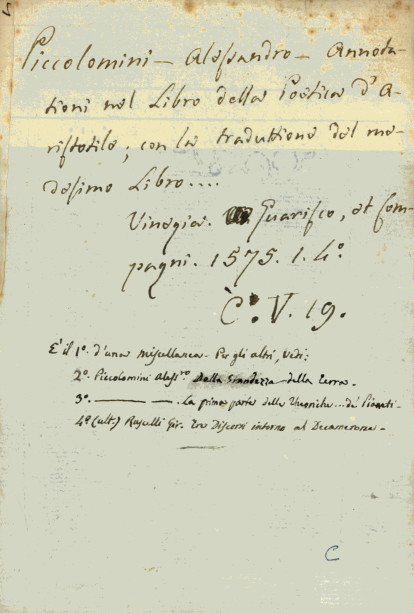 Piccolomini - Alessandro - Annota-
tioni nel Libro della Poetica d'A-
ristotile; con la traduttione del me-
desimo Libro....
Vinegia. Guarisco, et Com-
pagni. 1575. 1. 4°.
C. V. 19.
E' il 1°. d'una Miscellanea. Per gli altri, vedi:
2°. Piccolomini Aless.ro Della Grandezza della terra.
3°. ——— ———. La prima parte delle Theoriche... de' Pianeti.
4° (ult.) Ruscelli Gir. Tre Discorsi intorno al Decamerone.
C